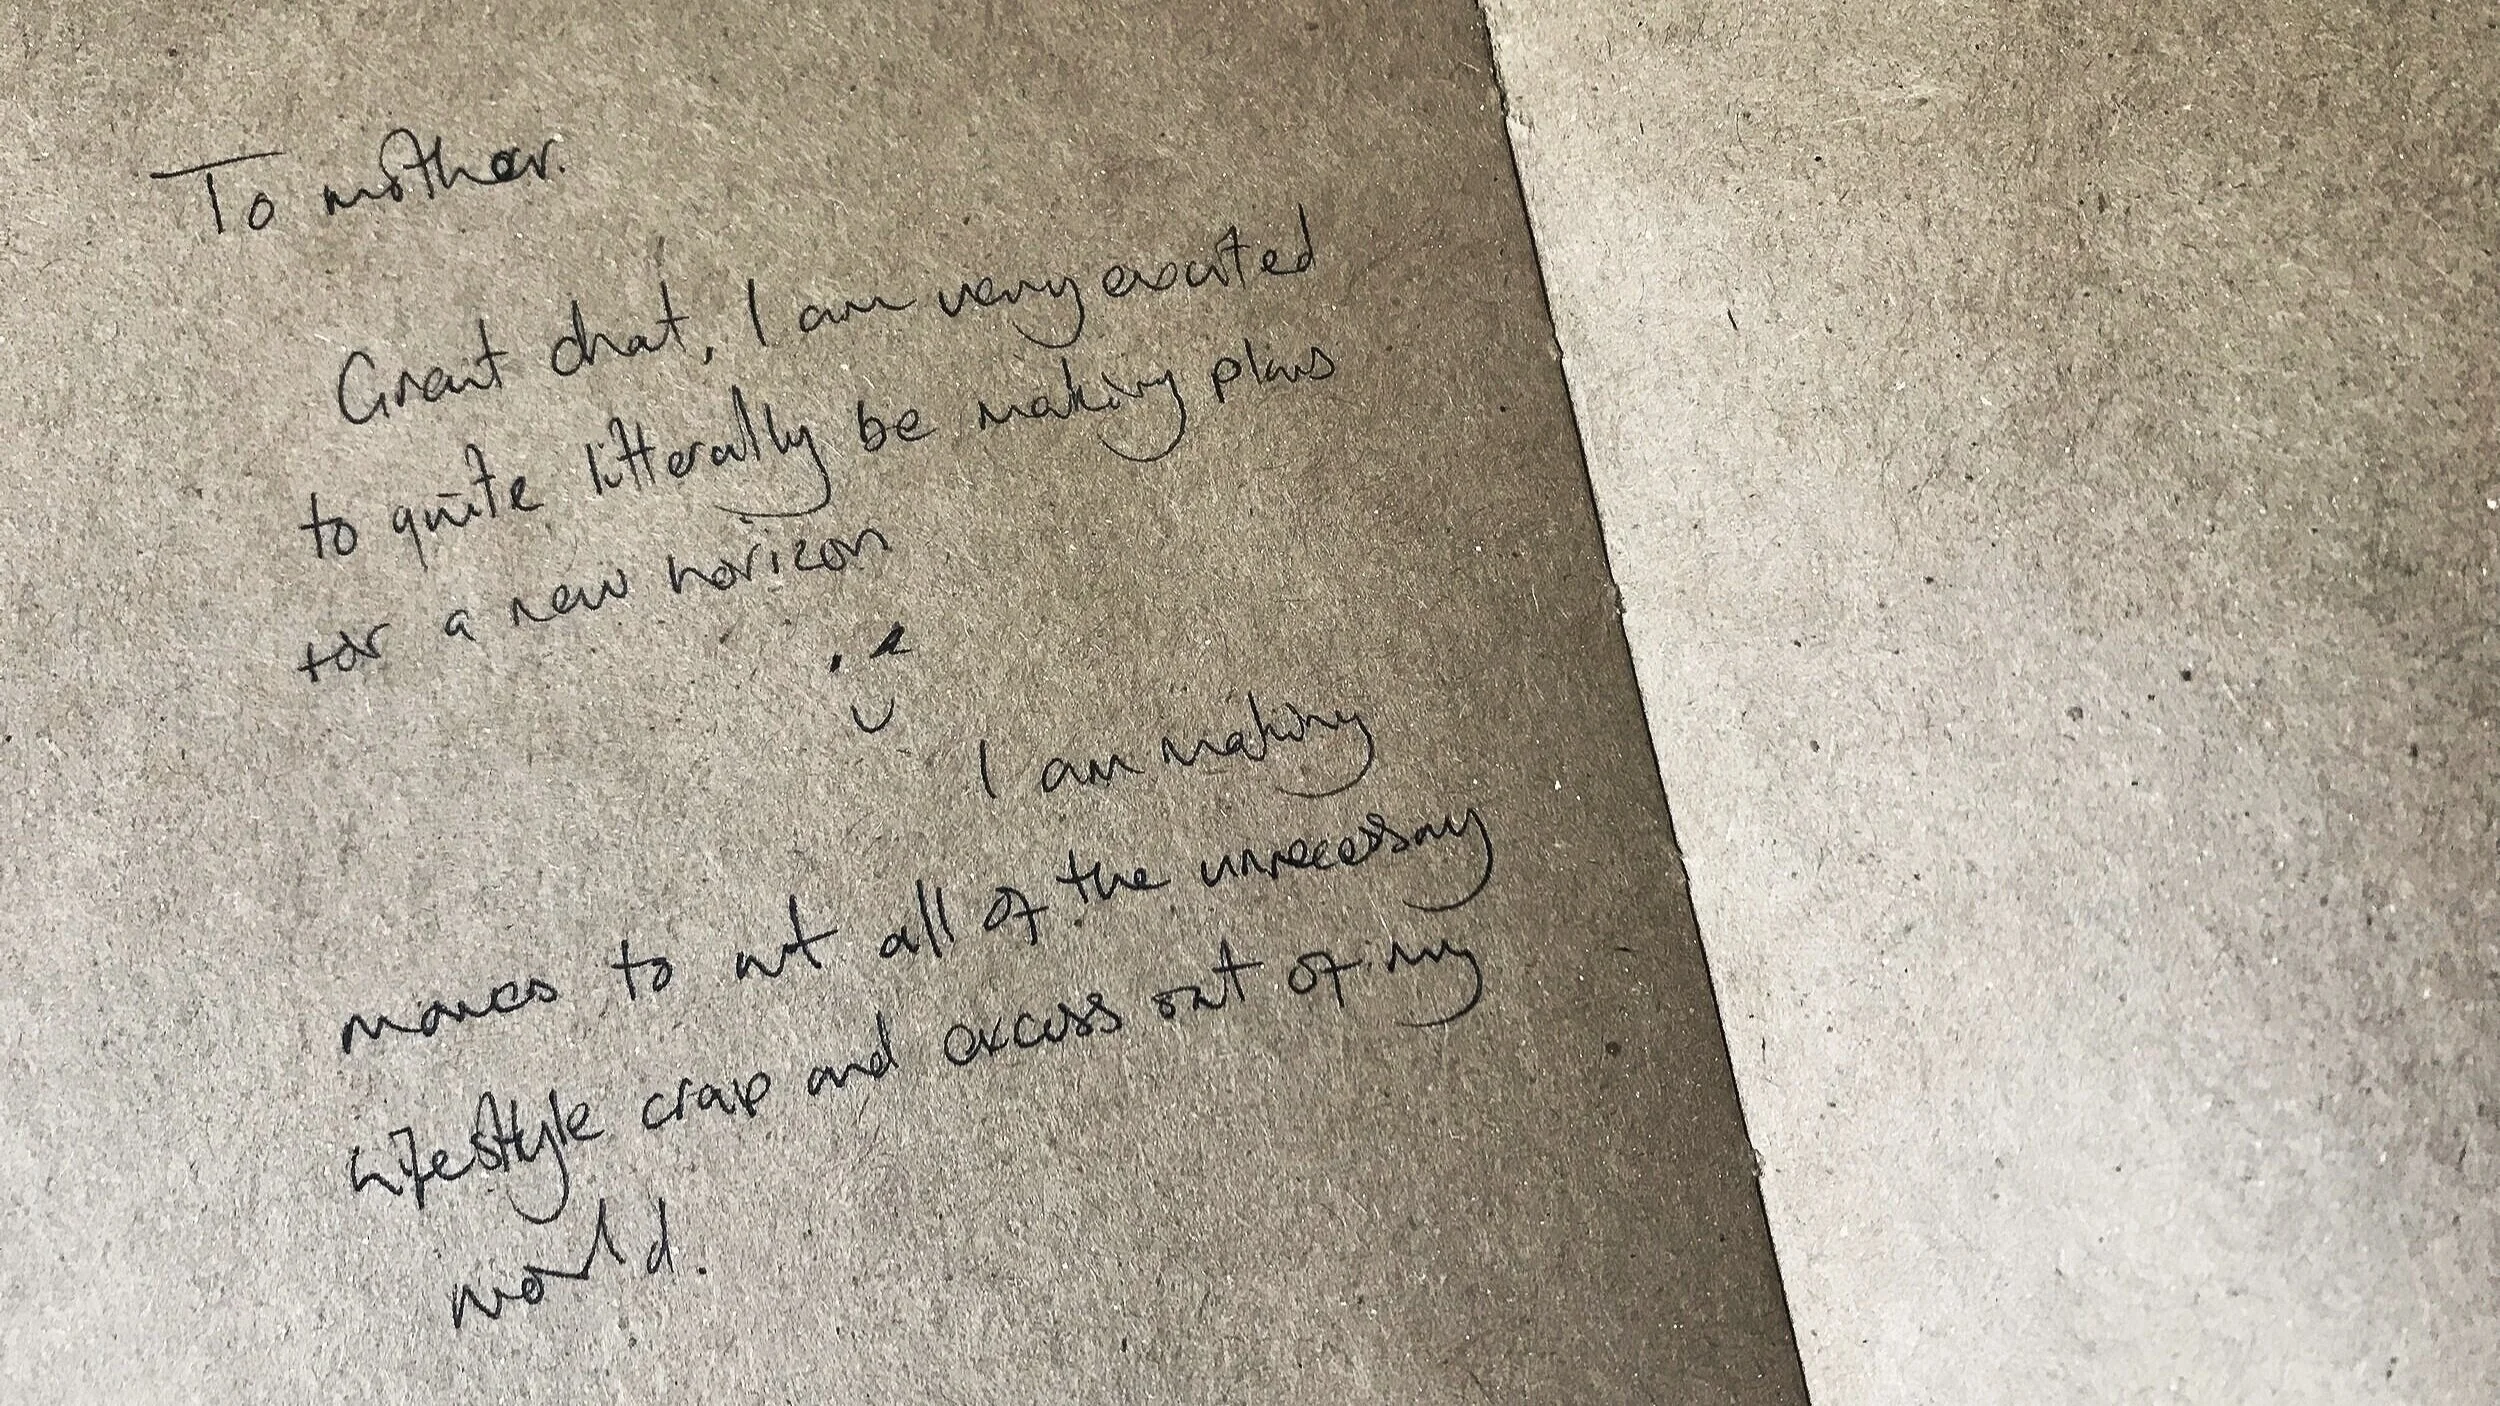 To mother.
Great chat, I am very excited
to quite litterally be making plans
for a new horizon
I am making
moves to cut all of the unnecessay
Lifestyle crap and excess out of my
world.